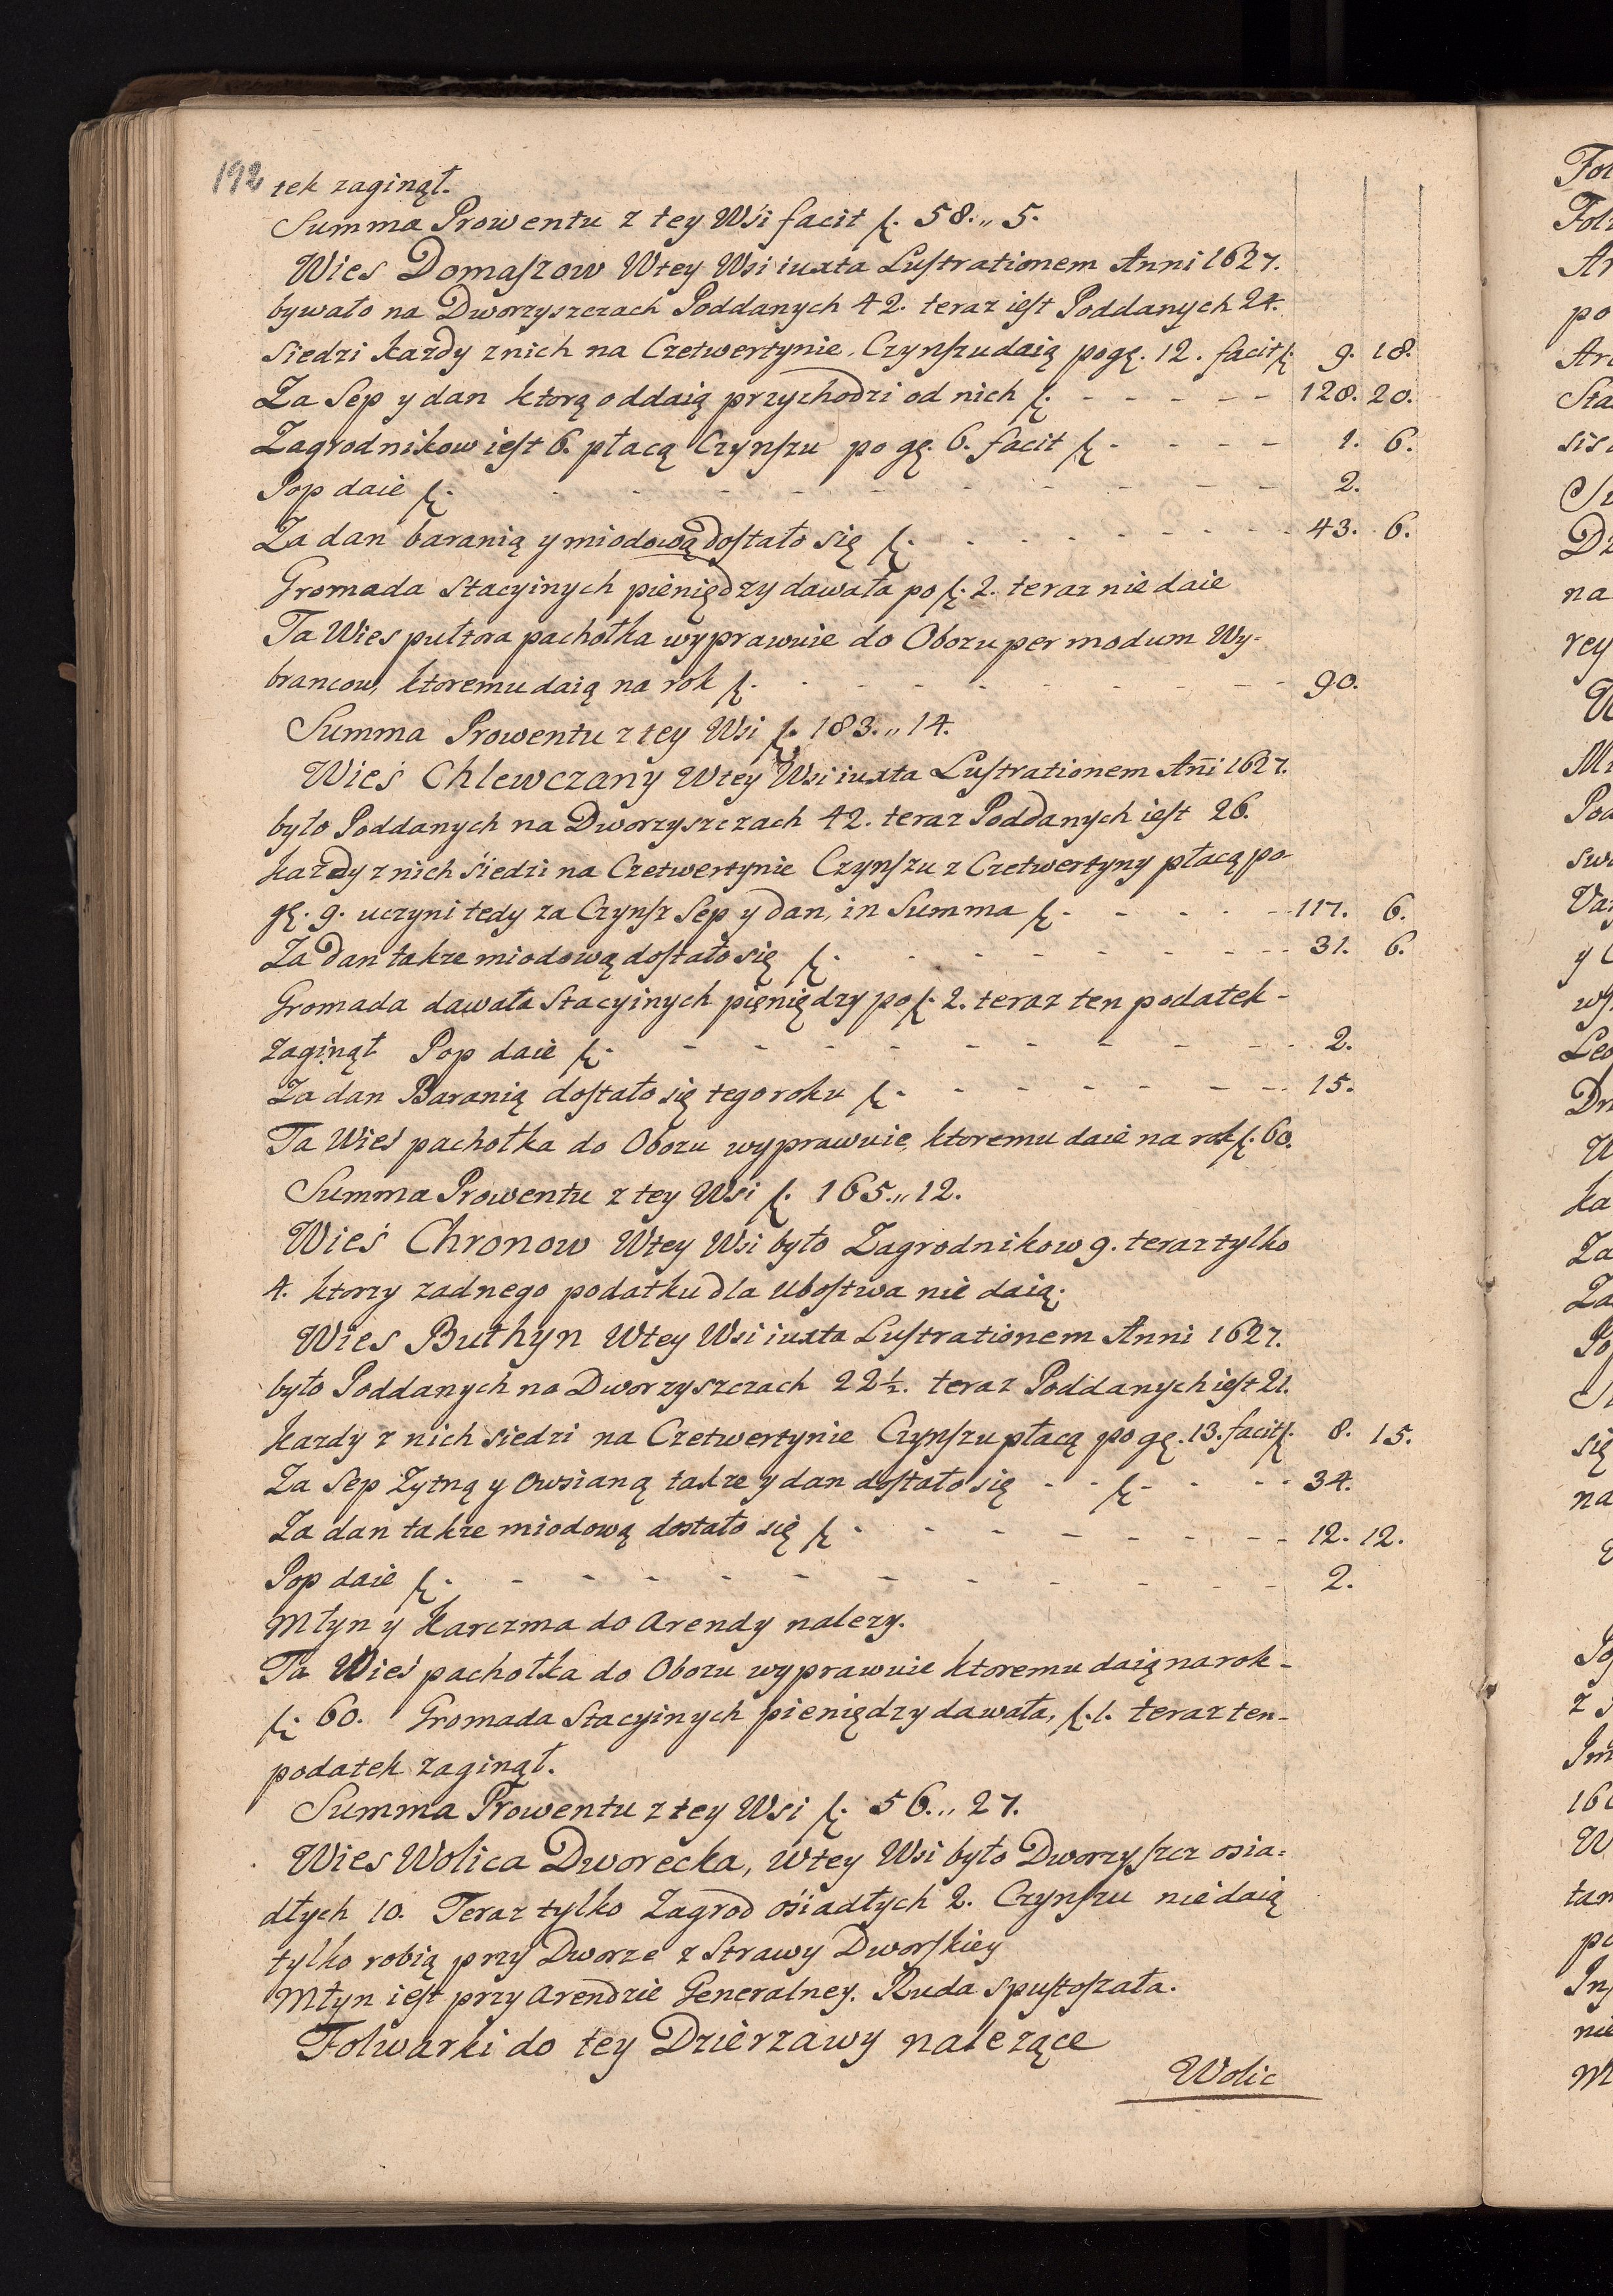 192 tek zaginął.
Summa Prowentu z tey Wśi facit f. 58.,, 5.
Wies Domaſzow Wtey Wsi iuxta Luſtrationem Anni 1627.
bywało na Dworzyszczach Poddanych 42. teraz ieſt Poddanych 24.
siedzi każdy z nich na Czetwertynie. Czynſzu daią po gę. 12. facit f. 9. 18.
Za Sep y dan ktorą oddaią przychodzi od nich f. - - - - - 128. 20.
Zagrodnikow ieſt 6. płacą Czynſzu po gę. 6. facit f. - - - 1. 6.
Pop daie f. - - - - - - - - - - 2.
Za dan baranią y miodową doſtało się f. - - - - - - 43. 6.
Gromada Stacyinych pieniędzy dawała po f. 2. teraz nie daie
Ta Wies pułtora pachołka wyprawuie do Obozu per modum Wy-
brancow, ktoremu daią na rok f. - - - - - - - - 90.
Summa Prowentu z tey Wsi f. 183.,, 14.
Wieś Chlewczany Wtey Wsi iuxta Luſtrationem Añi 1627.
było Poddanych na Dworzyszczach 42. teraz Poddanych ieſt 26.
każdy z nich śiedzi na Czetwertynie Czynſzu z Czetwertyny płacą po-
gę. 9. uczyni tedy za Czynſz Sep y dan, in Summa f. - - - - 117. 6.
Za dan takze miodową doſtało się f. - - - - - - - 31. 6.
Gromada dawała Stacyinych pięniędzy po f. 2. teraz ten podatek -
zaginął Pop daie f. - - - - - - - - - - 2.
Za dan Baranią doſtało się tego roku f. - - - - - - 15.
Ta Wieś pachołka do Obozu wyprawuie, ktoremu daie na rok f. 60.
Summa Prowentu z tey Wsi f. 165.,, 12.
Wieś Chronow Wtey Wsi było Zagrodnikow 9. teraz tylko
4. ktorzy zadnego podatku dla Uboſtwa nie daią.
Wies Buthyn Wtey Wsi iuxta Luſtrationem Anni 1627.
było Poddanych na Dworzyszczach 22½. teraz Poddanych ieſt 21.
kazdy z nich siedzi na Czetwertynie Czynſzu płacą po gę. 13. facit f. 8. 15.
Za Sep Zytną y Owsianą takze y dan doſtało się - - f. - - - 34.
Za dan takze miodową dostało się f. - - - - - - - 12. 12.
Pop daie f. - - - - - - - - - - 2.
Młyn y Karczma do Arendy nalezy.
Ta Wieś pachołka do Obozu wyprawuie ktoremu daią na rok -
f. 60. Gromada Stacyinych pieniędzy dawała, f. 1. teraz ten -
podatek zaginął.
Summa Prowentu z tey Wsi f. 56.,, 27.
Wies Wolica Dworecka, Wtey Wsi było Dworzyſzcz osia-
dłych 10. Teraz tylko Zagrod ośiadłych 2. Czynſzu nie daią
tylko robią przy Dworze z Strawy Dworſkiey
Młyn ieſt przy Arendzie Generalney. Ruda Spuſtoſzała.
Folwarki do tey Dzierzawy nalezące
Wolic